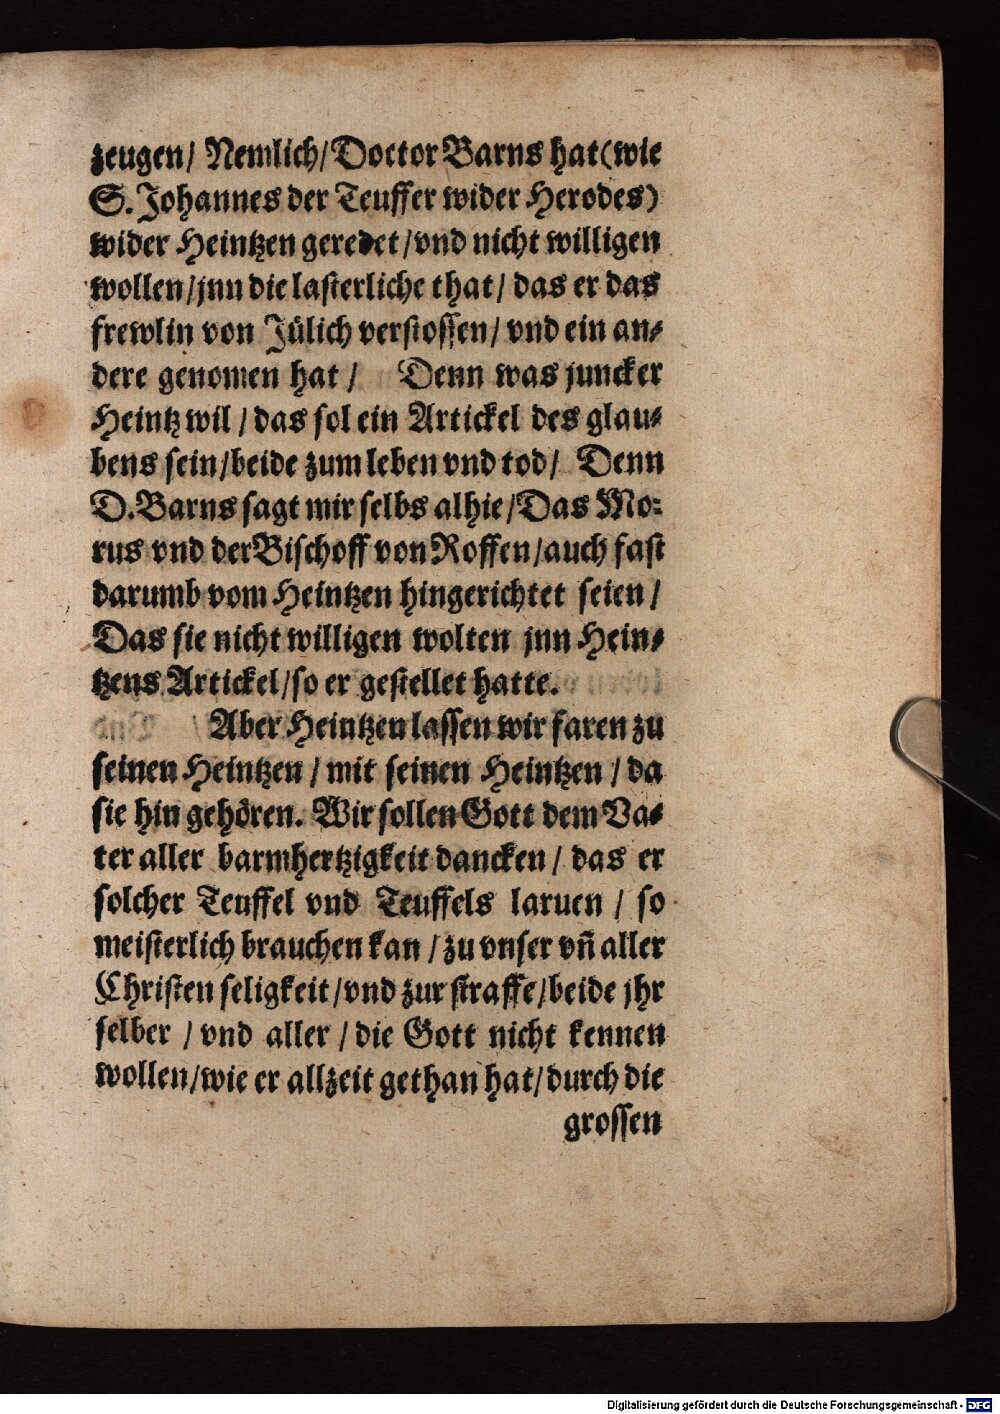 zeugen/ Nemlich/Doctor Barns hat(wie
S. Johannes der Teuffer wider Herodes)
wider Heintzen geredet/vnd nicht willigen
wollen/jnn die lasterliche that/ das er das
frewlin von Jülich verstossen/ vnd ein an⸗
dere genomen hat/ Denn was juncker
Heintz wil/ das sol ein Artickel des glau⸗
bens sein/beide zum leben vnd tod/ Denn
D.Barns sagt mir selbs alhie/Das Mo⸗
rus vnd der Bischoff von Roffen/auch fast
darumb vom Heintzen hingerichtet seien/
Das sie nicht willigen wolten jnn Hein⸗
tzens Artickel/so er gestellet hatte.
Aber Heintzen lassen wir faren zu
seinen Heintzen/ mit seinen Heintzen/ da
sie hin gehören. Wir sollen Gott dem Va⸗
ter aller barmhertzigkeit dancken/ das er
solcher Teuffel vnd Teuffels laruen/ so
meisterlich brauchen kan/ zu vnser vñ aller
Christen seligkeit/vnd zur straffe/beide jhr
selber/ vnd aller/ die Gott nicht kennen
wollen/wie er allzeit gethan hat/durch die
grossen
Digitalisierung gefördert durch die Deutsche Forschungsgemeinschaft - DFG